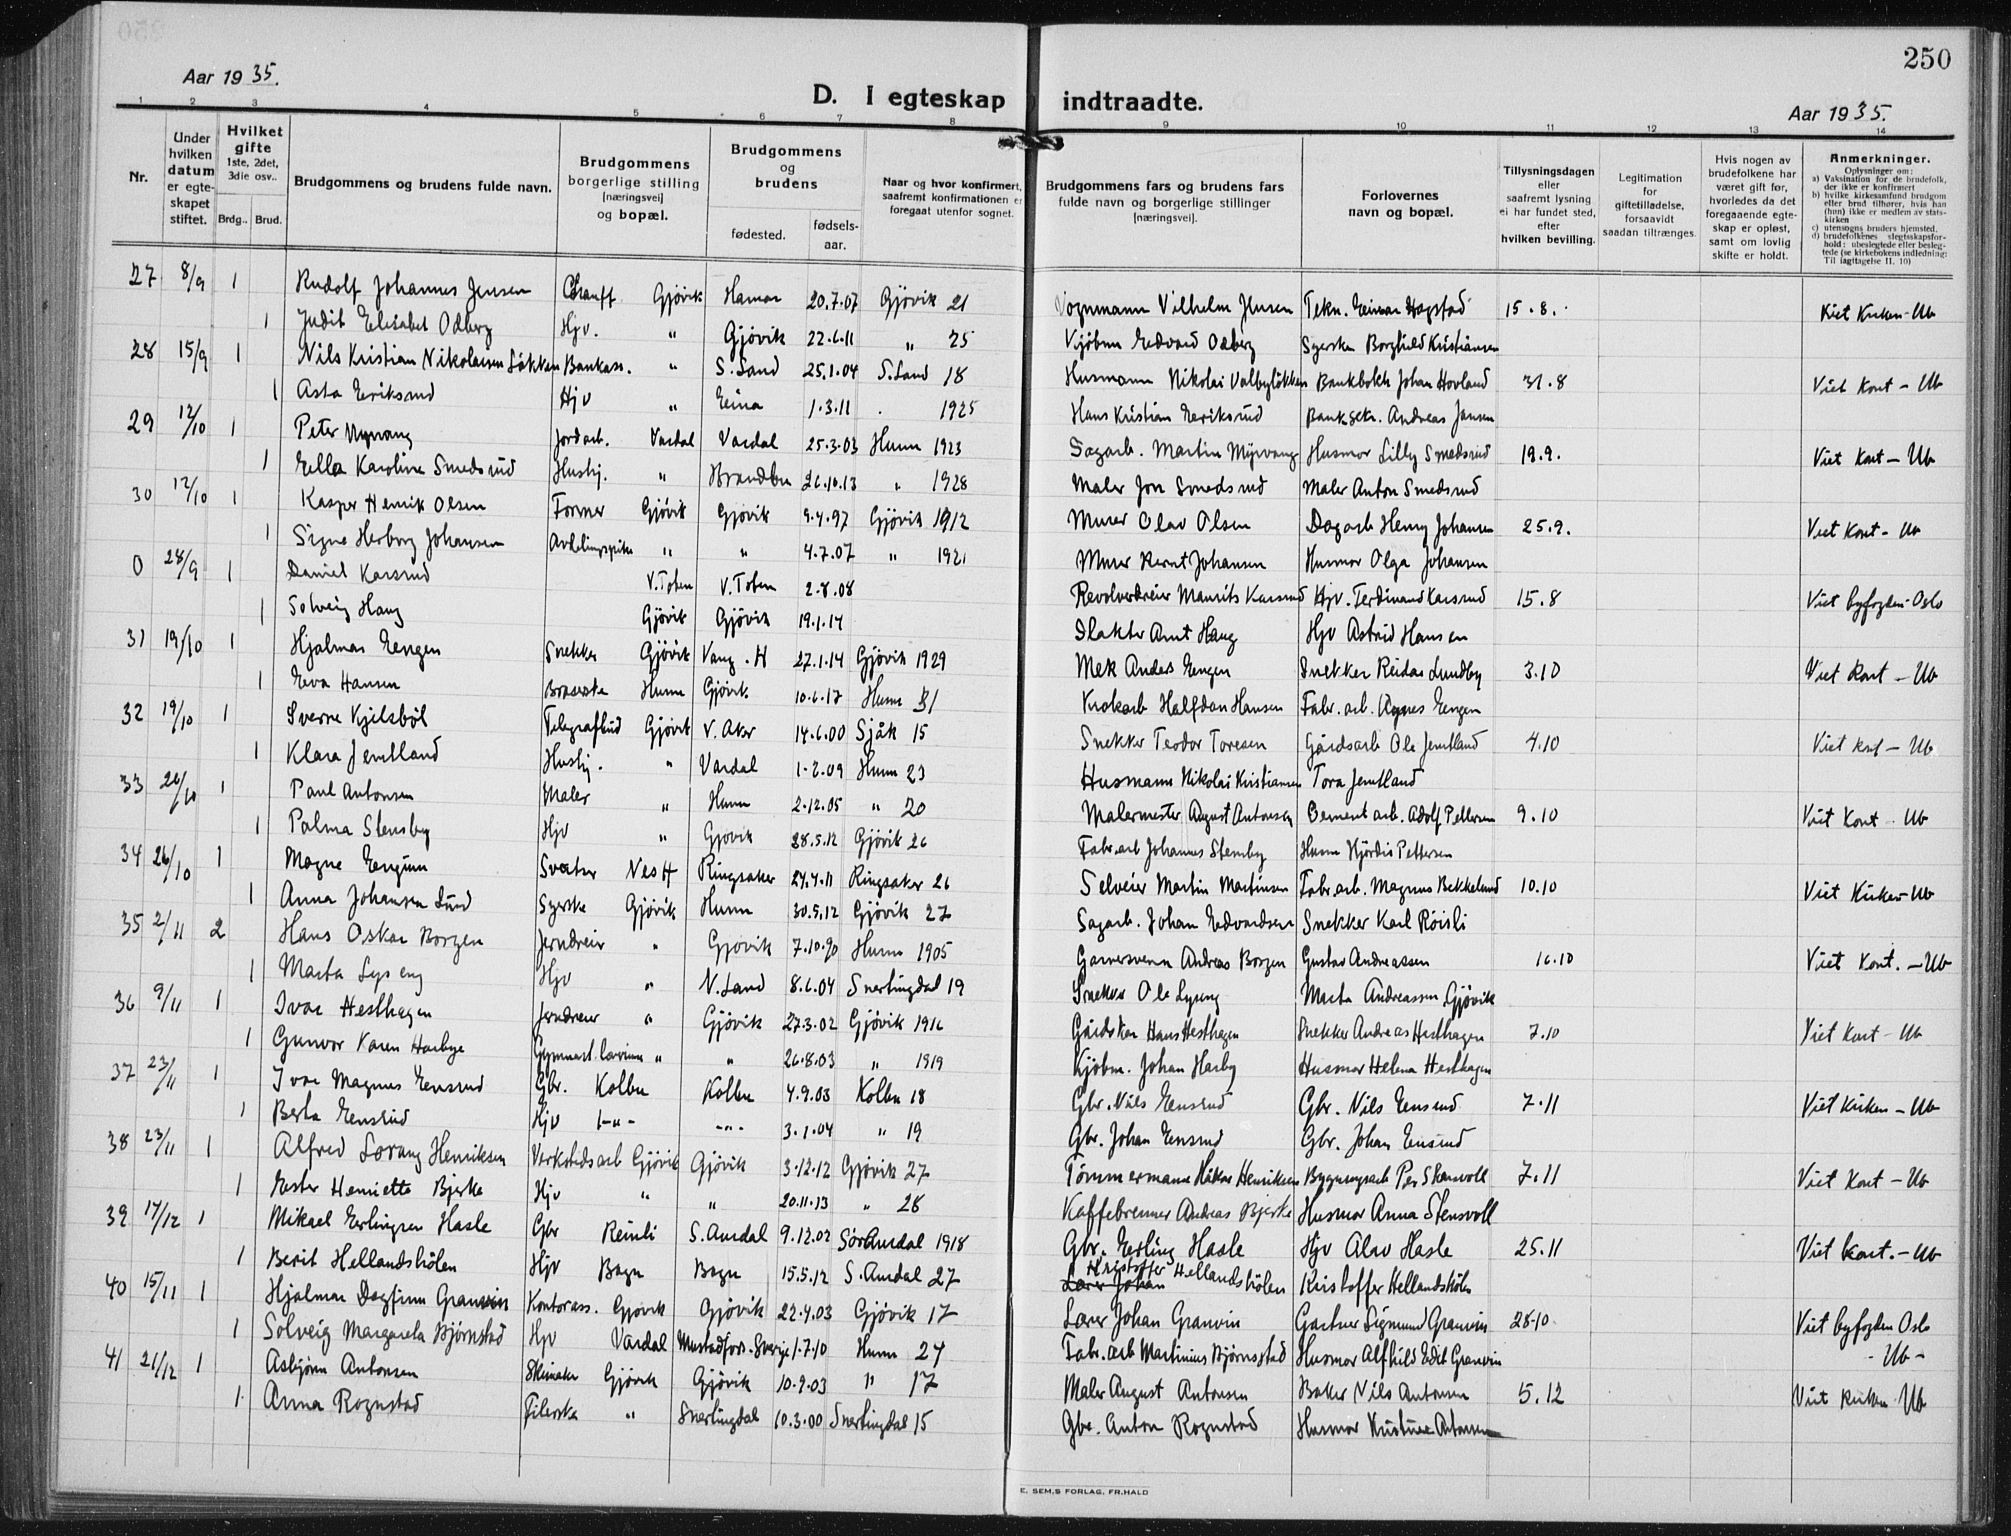 250
Aar 1935.
D. I egteskap indtraadte.
Aar 1935.
1 2 3 4 5 6 7 8 9 10 11 12 13 14
Nr.
Under hvilken datum er egteskapet stiftet.
Hvilket gifte 1ste, 2det, 3die osv..
Brdg.. Brud.
Brudgommens og brudens fulde navn.
Brudgommens borgerlige stilling [næringsvei] og bopæl.
Brudgommens og brudens
fødested. fødselsaar.
Naar og hvor konfirmert, saafremt konfirmationen er foregaat utenfor sognet.
Brudgommens fars og brudens fars fulde navn og borgerlige stillinger [næringsvei].
Forlovernes navn og bopæl.
Tillysningsdagen eller saafremt lysning ei har fundet sted, efter hvilken bevilling.
Legitimation for giftetilladelse, forsaavidt saadan tiltrænges.
Hvis nogen av brudefolkene har været gift før, hvorledes da det foregaaende egteskap er opløst, samt om lovlig skifte er holdt.
Anmerkninger.
Oplysninger om:
a) Vaksination for de brudefolk, der ikke er konfirmert
b) hvilke kirkesamfund brudgom eller brud tilhører, hvis han (hun) ikke er medlem av statskirken
c) utensogns bruders hjemsted,
d) brudefolkenes slegtsskapsforhold: ubeslegtede eller beslegtede (se kirkebokens indledning: Til iagttagelse II. 10)
27 8/9 1 Rudolf Johannes Jensen Chauff. Gjövik Hamar 20.7.07 Gjövik 21 Vognmann Vilhelm Jensen Tekn. Einar Hagstad 15.8. Viet Kirken - Ub
1 Judit Elisabet Odberg Hjv. " Gjövik 22.6.11 " 25 Kjöbm Edvard Odberg Syerske Borghild Kristiansen
28 15/9 1 Nils Kristian Nikolaisen Lökken Bankass. " S. Land 25.1.04 S. Land 18 Husmann Nikolai Valbylökken Bankbokh Johan Hovland 31.8 Viet Kont - Ub
1 Asta Eriksrud Hjv " Eina 1.3.11 . 1925 Hans Kristian Eriksrud Banksekr. Andreas Jansen
29 12/10 1 Peter Myrvang Jordarb. Vardal Vardal 25.3.03 Hunn 1923 Sagarb. Martin Myrvang Husmor Lilly Smedsrud 19.9. Viet Kont - Ub
1 Ella Karoline Smedsrud Hushj. " Brandbu 26.10.13 " 1928 Maler Jon Smedsrud Maler Anton Smedsrud
30 12/10 1 Kasper Henrik Olsen Former Gjövik Gjövik 9.4.97 Gjövik 1912 Murer Olav Olsen Dagarb Henry Johansen 25.9. Viet Kont - Ub
1 Signe Herborg Johansen Avdelingspike " " 4.7.07 " 1921 Murer Bernt Johansen Husmor Olga Johansen
0 28/9 1 Daniel Karsrud V. Toten V. Toten 2.8.08 Revolverdreier Maurits Karsrud Hjv. Ferdinand Karsrud 15.8 Viet byfogden Oslo
1 Solveig Haug Gjövik Gjövik 19.1.14 Slakter Arnt Haug Hjv Astrid Hansen
31 19/10 1 Hjalmar Eengen Snekker Gjövik Vang. H 27.1.14 Gjövik 1929 Mek Anders Eengen Snekker Reidar Lundby 3.10 Viet Kont - Ub
1 Eva Hansen Hunn Gjövik 10.6.17 Hunn 31 Krokarb Halfdan Hansen Fabr. arb. Agnes Eengen
32 19/10 1 Sverre Kjelsböl Telegrafbud Gjövik V. Aker 14.6.00 Sjåk 15 Snekker Teodor Toresen Gårdsarb Ole Jemtland 4.10 Viet Kont - Ub
1 Klara Jemtland Hushj. " Vardal 1.2.09 Hunn 23 Husmann Nikolai Kristiansen Tora Jemtland
33 26/10 1 Paul Antonsen Maler " Hunn 2.12.05 " 20 Malermester August Antonsen Cement arb. Adolf Pettersen 9.10 Viet Kont - Ub
1 Palma Stensby Hjv " Gjövik 28.5.12 Gjövik 26 Fabr. arb Johannes Stensby Husm Hjördis Pettersen
34 26/10 1 Magne Engum Nes H Ringsaker 24.4.11 Ringsaker 26 Selveier Martin Martinsen Fabr. arb. Magnus Bekkelund 10.10 Viet Kirken - Ub
1 Anna Johansen Lund Syerske Gjövik Hunn 30.5.12 Gjövik 27 Sagarb. Johan Edvardsen Snekker Karl Röisli
35 2/11 2 Hans Oskar Borgen Jerndreier " Gjövik 7.10.90 Hunn 1905 Garversvenn Andreas Borgen Gustav Andreassen 16.10 Viet Kont. - Ub
1 Marta Lyseng Hjv " N. Land 8.6.04 Snertingdal 19 Snekker Ole Lyseng Marta Andreassen Gjövik
36 9/11 1 Ivar Hesthagen Jerndreier " Gjövik 27.3.02 Gjövik 1916 Gårdsker Hans Hesthagen Snekker Andreas Hesthagen 7.10 Viet Kont - Ub
1 Gunvor Karen Harbye Gymnast. " " 26.8.03 " 1919 Kjöbm. Johan Harby Husmor Helena Hesthagen
37 23/11 1 Ivar Magnus Eensrud Gbr. Kolbu Kolbu 4.9.03 Kolbu 18 Gbr. Nils Eensrud Gbr. Nils Eensrud 7.11 Viet Kirken - Ub
1 Berta Eensrud Hjv -"- -"- 3.1.04 " 19 Gbr. Johan Eensrud Gbr. Johan Eensrud
38 23/11 1 Alfred Lorang Henriksen Verkstedsarb Gjövik Gjövik 3.12.12 Gjövik 27 Tömmermann Håkon Henriksen Bygningsarb Per Stensvoll 7.11 Viet Kont - Ub
1 Ester Henriette Bjerke Hjv " " 20.11.13 " 28 Kaffebrenner Andreas Bjerke Husmor Anna Stensvoll
39 14/12 1 Mikael Erlingsen Hasle Gbr Reinli S. Aurdal 9.12.02 Sör Aurdal 1918 Gbr. Erling Hasle Hjv Alav Hasle 25.11 Viet kont. - Ub
1 Berit Hellandshölen Hjv Bagn Bagn 15.5.12 S. Aurdal 27 Lærer Johan Kristoffer Hellandshölen Kristoffer Hellandshölen
40 15/11 1 Hjalmar Dagfinn Granvin Kontorass. Gjövik Gjövik 22.4.03 Gjövik 17 Lærer Johan Granvin Gartner Sigmund Granvin 28.10. Viet byfogden Oslo
1 Solveig Margareta Björnstad Hjv Vardal Mustadfors. Sverige 1.7.10 Hunn 24 Fabr. arb Martinius Björnsstad Husmor Alfhild Edit Granvin - Ub -
41 21/12 1 Asbjörn Antonsen Gjövik Gjövik 10.9.03 " 17 Maler August Antonsen Baker Nils Antonsen 5.12 Viet kirken Ub
1 Anna Rognstad " Snertingdal 10.3.00 Snertingdal 15 Gbr. Anton Rognstad Husmor Kristine Antonsen
E. SEM,S FORLAG, FR.HALD